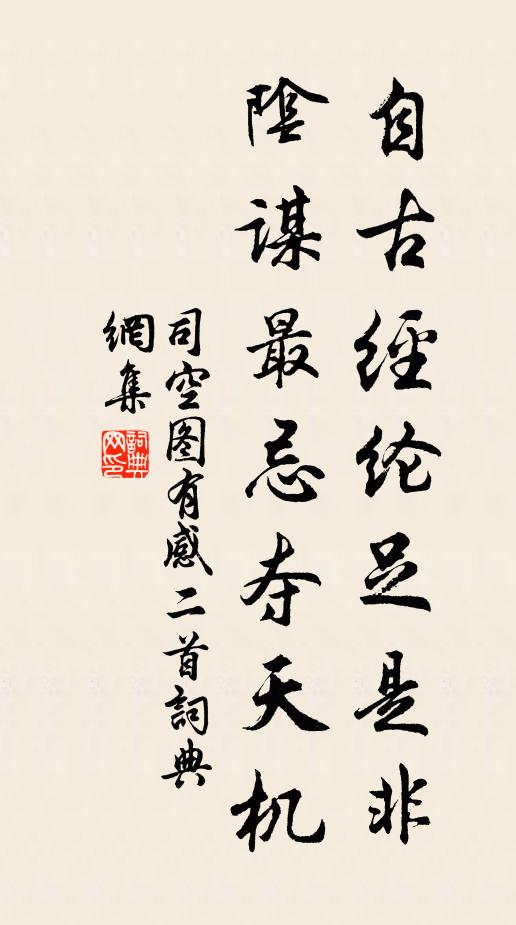 自古經纶足是非
陰謀最忌夺天机
司空图有感二首詞典
網集
詞典
网印